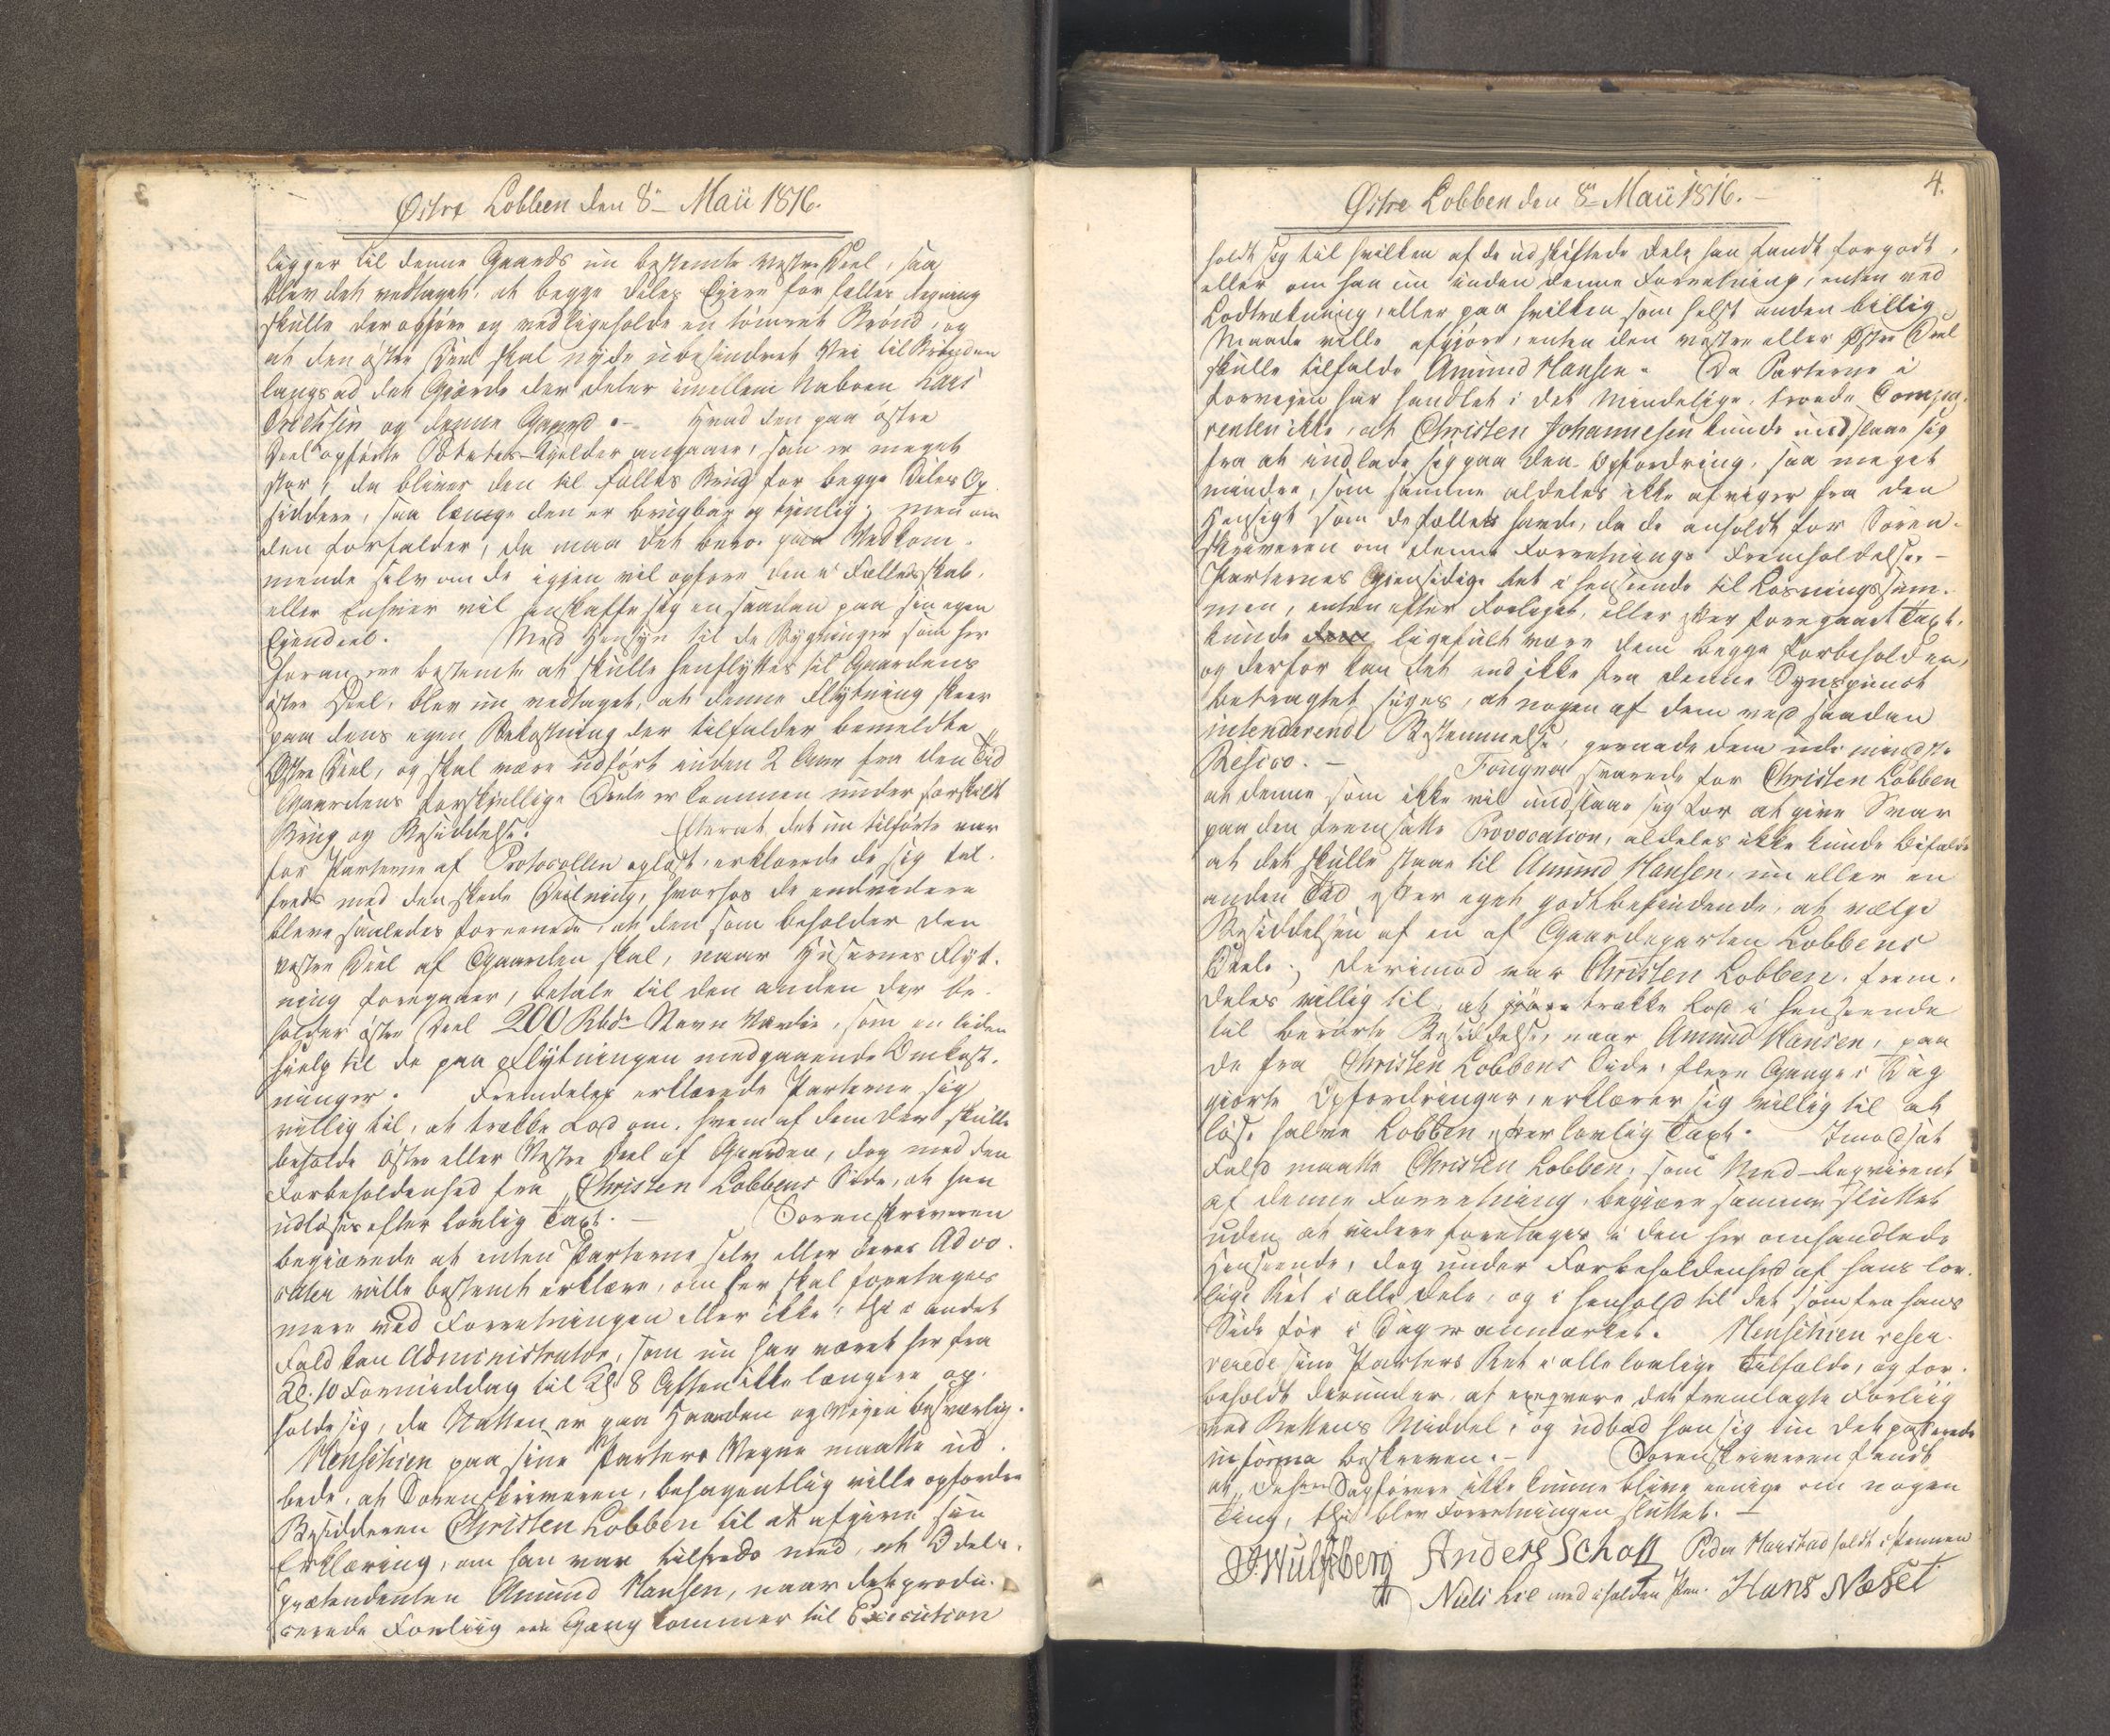 Østre Lobben den 8de Maii 1816.
ligger til denne Gaards nu bestemte vestre Deel, saa
blev det vedtaget, at begge Deles Ejere for fælles Regning
skulle der opføre og vedligeholde en tømret Brønd, og
at den østre Deel skal nyde ubehindret Vei til Brønden
langs ad det Gjærde der deler imellem Naboen Lars
Erichsen og denne Gaard. – Hvad den paa østre
Deel opførte Potetes-Kjelder angaaer, som er meget
stor, da bliver den til fælles Brug for begge Deles Op-
siddere, saa længe den er brugbar og tjenlig; men om
den forfalder, da maa det beroe paa Vedkom-
mende selv om de igjen vil opføre den i Fællesskab,
eller Enhver vil anskaffe sig en saadan paa sin egen
Eiendeel. Med Hensyn til de Bygninger som her
foran ere bestemte at skulle henflyttes til Gaardens
østre Deel, blev nu vedtaget, at denne Flytning skeer
paa dens egen Bekostning der tilfalder bemeldte
Østre Deel, og skal være udført inden 2 Aar fra den Tid
Gaardens forskjellige Deele er kommen under forskilt
Brug og Besiddelse. Efterat det nu tilførte var
for Parterne af Protocollen oplæst, erklærede de sig til-
freds med den skede Deelning, hvorhos de endvidere
bleve saaledes forenede, at den som beholder den
vestre Deel af Gaarden skal, naar Husernes Flyt-
ning foregaaer, betale til den anden der be-
holder østre Deel 200 Rbdr Navn Værdie, som en liden
hielp til de paa Flytningen medgaaende Omkost-
ninger. Fremdeles erklærede Parterne sig
villig til, at trække Lod om, hvem af dem der skulle
beholde Østre eller Vestre Deel af Gaarden, dog med den
Forbeholdenhed fra Christen Lobbens Side, at han
udløses efter lovlig Taxt. – Sorenskriveren
begiærede at enten Parterne selv eller deres Advo-
cater ville bestemt erklære, om her skal foretages
mere ved Forretningen eller ikke, thi i andet
Fald kan Administrator, som nu har været her fra
Kl. 10 Formiddag til Kl. 8 Aften ikke længere op-
holde sig, da Natten er paa Haanden og Veien besværlig.
Menschien paa sine Parters Vegne maatte ud-
bede, at Sorenskriveren, behagentlig ville opfordre
Besidderen Christen Lobben til at afgive sin
Erklæring, om han var tilfreds med, at Odels-
prætendenten Amund Hansen, naar det produ-
cerede Forliig en Gang kommer til Execution
4.
Østre Lobben den 8de Maii 1816. –
holdt sig til hvilken af de udskiftede Dele han fandt forgodt,
eller om han nu inden denne Forretning, enten ved
Lodtrækning, eller paa hvilken som helst anden billig
Maade ville afgjøre, enten den vestre eller Østre Deel
skulle tilfalde Amund Hansen. Da Parterne i
forveien har handlet i det Mindelige, troede Compa-
renten ikke, at Christen Johannesen kunde undslaae sig
fra at indlade sig paa den Opfordring, saa meget
mindre, som samme aldeles ikke afviger fra den
Hensigt som de fælles havde, da de anholdt for Soren-
skriveren om denne Forretnings Fremholdelse. –
Parternes Giensidige Ret i henseende til Løsningssum-
men, enten efter Forliget, eller efter foregaaet Taxt,
kunde ligefuldt være dem begge forbeholden,
og derfor kan det end ikke fra denne Synspunct
betragtet siges, at nogen af dem ved saadan
intenderende Bestemmelse, geraade dem udi mindste
Resico. – Fougner svarede for Christen Lobben
at denne som ikke vil undslaae sig for at give Svar
paa den fremsatte Provocation, aldeles ikke kunde bifalde
at det skulle staae til Amund Hansen, nu eller en
anden Tid efter eget godtbefindende, at vælge
Besiddelsen af en af Gaardeparten Lobbens
Deele; derimod var Christen Lobben, frem-
deles villig til, at trække Lod i henseende
til berørte Besiddelse, naar Amund Hansen, paa
de fra Christen Lobbens Side, flere Gange i Dag
giorte Opfordringer, erklærer sig villig til at
løse halve Lobben efter lovlig Taxt. I modsat
Fald maatte Christen Lobben, som Med-Reqvirent
af denne Forretning, begiære samme sluttet
uden at videre foretages i den her omhandlede
Henseende, dog under Forbeholdenhed af hans lov-
lige Ret i alle Dele, og i henhold til det som fra hans
Side før i Dag er anmærket. Menschien reser-
verede sine Parters Ret i alle lovlige Tilfælde, og for-
beholdt derunder, at exeqvere det fremlagte Forliig
ved Rettens Middel, og udbad han sig nu det passerede
in forma beskreven. – Sorenskriveren fandt
at Sagførere ikke kunne blive eenige om nogen
Ting, thi blev Forretningen sluttet. –
J. Wulfsberg Anders Scholl Peder Harstad holdt i Pennen
Niels Lie med iholden Pen. Hans Næset